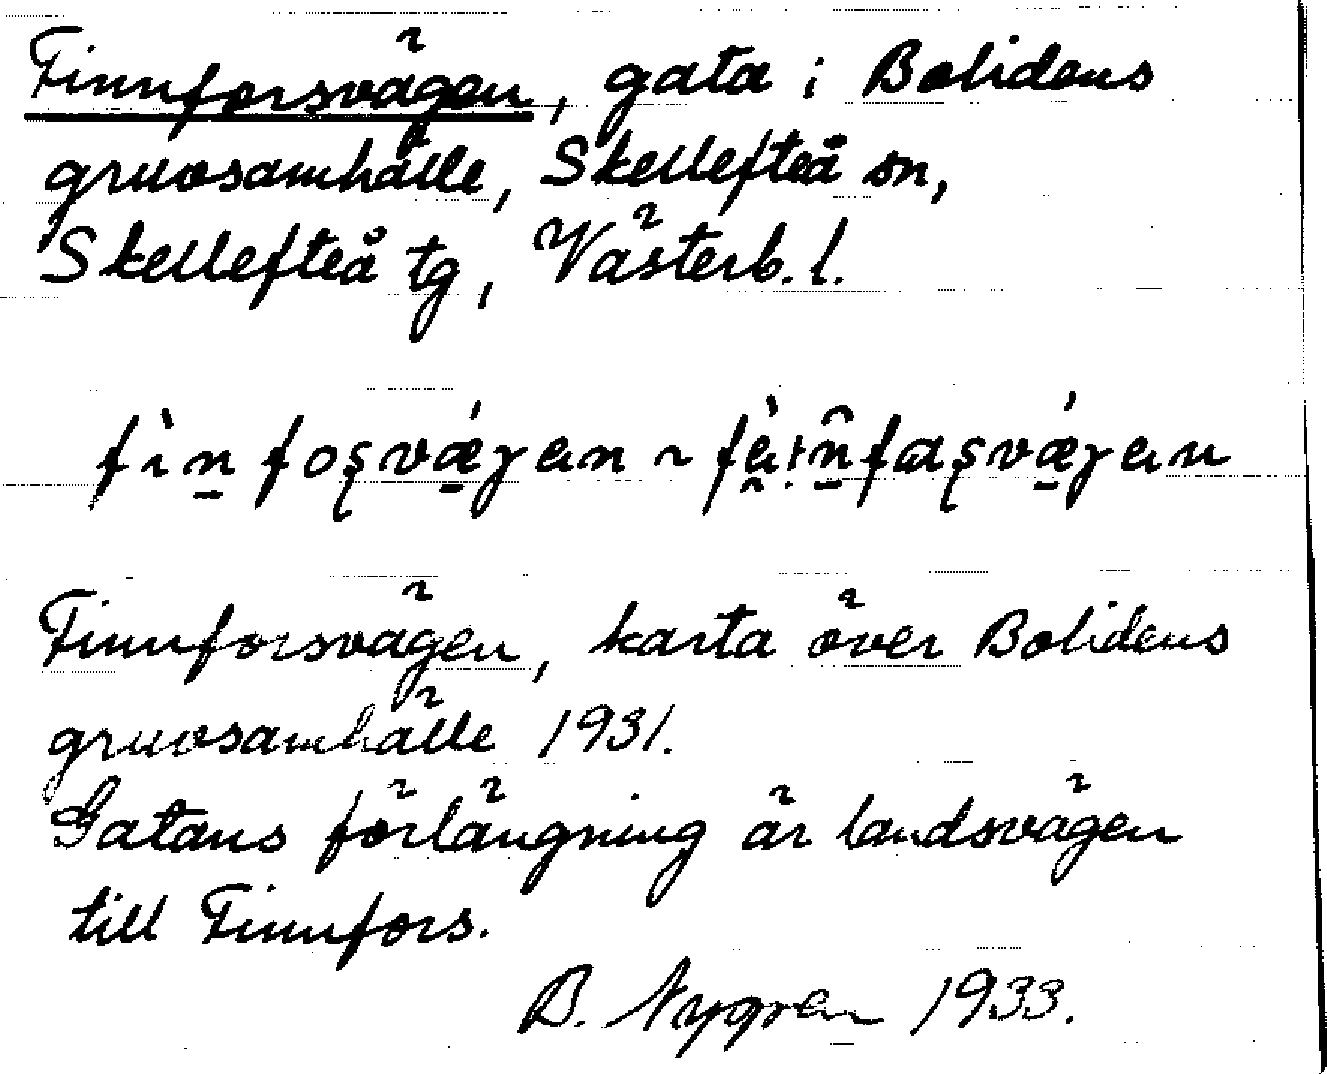 Finnforsvägen, gata i Bolidens
gruvsamhälle, Skellefteå sn,
Skellefteå tg, Västerb. l.
Finnforsvägen, karta över Bolidens
gruvsamhälle 1931.
Gatans förlängning är landsvägen
till Finnfors.
B. Nygren 1933.